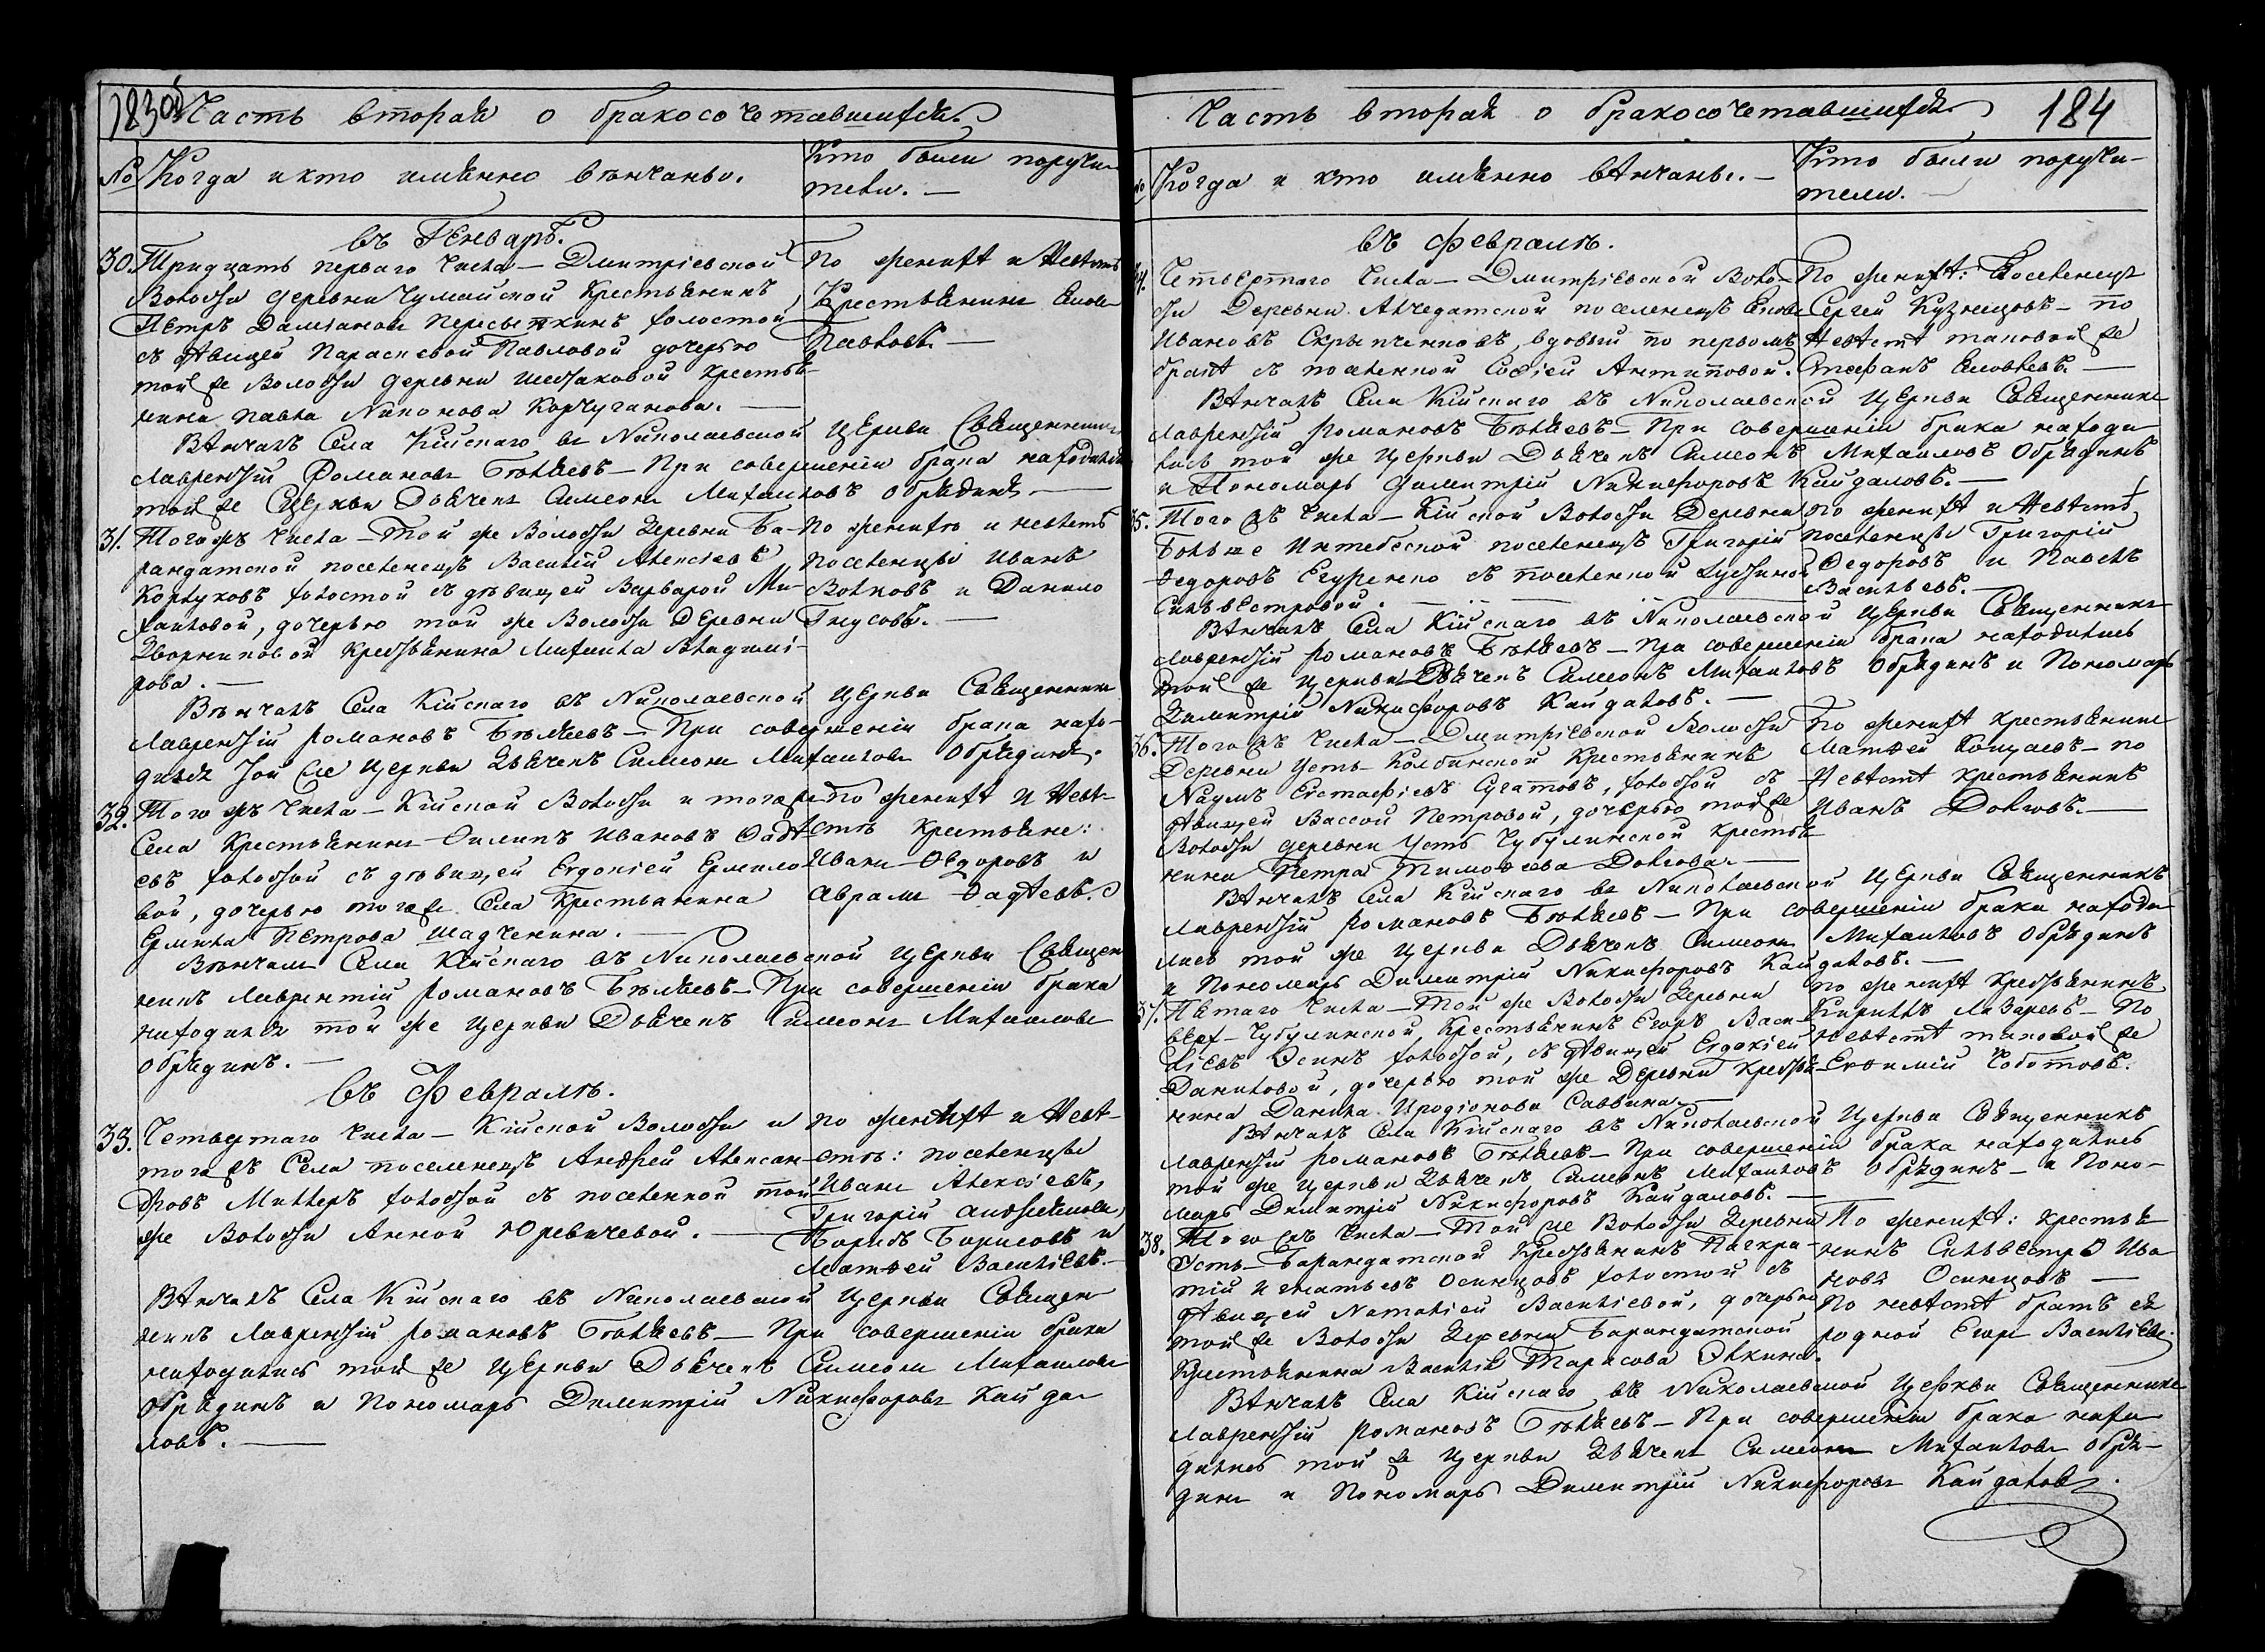 183об
Часть вторая о бракосочетавшихся
№ Когда и кто имянно вѣнчаны.
Кто были поручи-
тели. —
въ Генварѣ.
30. Тридцать перваго числа — Дмитріевской
Волости деревни Чумайской Крестьянинъ
Петръ Даміановъ Пересыпкинъ холостой,
съ дѣвицей Параскевой Павловой дочерью
той же Волости деревни Шестаковой Крестья-
нина Павла Корчуганова. —
По женихѣ и Невѣстѣ
Крестьянинъ
Павловъ. —
Вѣнчалъ Села Кійскаго въ Николаевской Церкви Священникъ
Лаврентій Романовъ Бѣляевъ — При совершеніи брака находился
той же Церкви Дьячекъ Симеонъ Михаиловъ Обрядинъ. —
31. Того жъ числа — Той же Волости Деревни Ба-
рандатской поселенецъ Василій Алексіевъ
Корлуковъ холостой съ дѣвицей Варварой Ми-
хаиловой, дочерью той же Волости Деревни
Дворниковой Крестьянина Михаила Владими-
рова. —
По женихѣ и невѣстѣ
поселенцы Иванъ
Волковъ и Данило
Гнусовъ. —
Вѣнчалъ Села Кійскаго въ Николаевской Церкви Священникъ
Лаврентій Романовъ Бѣляевъ — При совершеніи брака нахо-
дился той же Церкви Дьячекъ Симеонъ Михаиловъ Обрядинъ.
32. Того жъ числа — Кійской Волости и того же
Села Крестьянинъ — Филипъ Ивановъ Фадѣ-
евъ холостой съ дѣвицей Евдокіей Ермило-
вой, дочерью того же Села Крестьянина
Ермила Петрова Шадченина. —
По женихѣ и Невѣ-
стѣ Крестьяне:
Иванъ Ѳедоровъ и
Аврамъ Фадѣевъ.
Вѣнчалъ Села Кійскаго въ Николаевской Церкви Священ-
никъ Лаврентій Романовъ Бѣляевъ — При совершеніи брака
находился той же Церкви Дьячекъ Симеонъ Михаиловъ
Обрядинъ. —
Въ Февралѣ.
33. Четвертаго числа — Кійской Волости и
того жъ Села поселенецъ Андрей Алексан-
дровъ Миллеръ холостой съ поселенкой той
же Волости Анной Юревичевой. —
по женихѣ и Невѣ-
стѣ: поселенцы
Иванъ Алексіевъ,
Григорій
Борисъ Борисовъ и
Матѳей Василіевъ. —
Вѣнчалъ Села Кійскаго въ Николаевской Церкви Священ-
никъ Лаврентій Романовъ Бѣляевъ — При совершеніи брака
находились той же Церкви Дьячекъ Симеонъ Михаиловъ
Обрядинъ и Пономарь Димитрій Никифоровъ Кайда-
ловъ. —
Часть вторая о бракосочетавшихся 184
№ Когда и кто имянно вѣнчаны. —
Кто были поручи-
тели. —
въ Февралѣ.
34. Четвертаго числа — Дмитріевской Воло-
сти Деревни Алчедатской поселенецъ
Ивановъ Скрыпченковъ, вдовый по первомъ
бракѣ съ поселенкой Софіей Антиповой. —
По женихѣ: Поселенецъ
Сергей Кузнецовъ — по
Невѣстѣ таковой же
Стефанъ —
Вѣнчалъ Села Кійскаго въ Николаевской Церкви Священникъ
Лаврентій Романовъ Бѣляевъ — При совершеніи брака находи-
лись той же Церкви Дьячекъ Симеонъ Михаиловъ Обрядинъ
и Пономарь Димитрій Никифоровъ Кайдаловъ. —
35. Того жъ числа — Кійской Волости Деревни
Больше Интебеской поселенецъ Григорій
Ѳедоровъ Егуренко съ поселенкой Іустиной
Сильвестровой. —
По женихѣ и Невѣстѣ
поселенцы Григорій
Ѳедоровъ и Павелъ
Васильевъ. —
Вѣнчалъ Села Кійскаго въ Николаевской Церкви Священникъ
Лаврентій Романовъ Бѣляевъ — При совершеніи брака находились
той же Церкви Дьячекъ Симеонъ Михаиловъ Обрядинъ и Пономарь
Димитрій Никифоровъ Кайдаловъ. —
36. Того жъ числа — Дмитріевской Волости
Деревни Усть-Колбинской Крестьянинъ
Наумъ Евстафіевъ Сухатовъ, холостой съ
дѣвицей Вассой Петровой, дочерью той же
Волости деревни Усть Чубулинской Крестья-
нина Петра Тимоѳеева Долгова. —
По женихѣ Крестьянинъ
Матѳей — по
Невѣстѣ Крестьянинъ
Иванъ Долговъ. —
Вѣнчалъ Села Кійскаго въ Николаевской Церкви Священникъ
Лаврентій Романовъ Бѣляевъ — При совершеніи брака находи-
лись той же Церкви Дьячекъ Симеонъ Михаиловъ Обрядинъ
и Пономарь Димитрій Никифоровъ Кайдаловъ. —
37. Пятаго числа — Той же Волости Деревни
Верх-Чубулинской, Крестьянинъ Егоръ Васи-
ліевъ Осинъ холостой, съ дѣвицей Евдокіей
Даниловой, дочерью той же Деревни Крестья-
нина Данила Иродіонова Саввина. —
по женихѣ Крестьянинъ
Кирилъ Лазаревъ — По
Невѣстѣ таковой же
Евѳимій Чоботовъ.
Вѣнчалъ Села Кійскаго въ Николаевской Церкви Священникъ
Лаврентій Романовъ Бѣляевъ — При совершеніи брака находились
той же Церкви Дьячекъ Симеонъ Михаиловъ Обрядинъ — и Поно-
марь Димитрій Никифоровъ Кайдаловъ. —
38. Того жъ числа — Той же Волости Деревни
Усть-Барандатской Крестьянинъ Панкра-
тій Игнатьевъ Осинцовъ холостой съ
дѣвицей Наталіей Василіевой, дочерью
той же Волости Деревни Барандатской
Крестьянина Василія Тарасова
По женихѣ: Крестья-
нинъ Сильвестръ Ива-
новъ Осинцовъ —
По невѣстѣ братъ ея
родной Егоръ Василіевъ.
Вѣнчалъ Села Кійскаго въ Николаевской Церкви Священникъ
Лаврентій Романовъ Бѣляевъ — При совершеніи брака нахо-
дились той же Церкви Дьячекъ Симеонъ Михаиловъ Обря-
динъ и Пономарь Димитрій Никифоровъ Кайдаловъ.